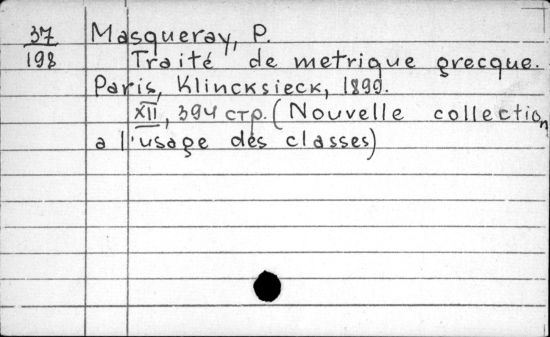 37 Masqueray, P.
198 Traité de metrique grecque.
Paris, Klincksieck, 1899.
XII, 394 стр. (Nouvelle collection
a l'usage des classes)